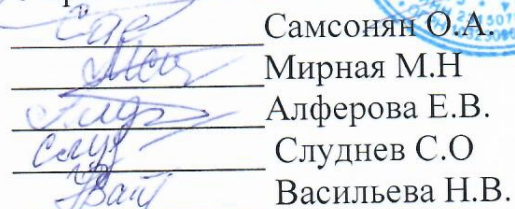 Самсонян О.А.
Мирная М.Н
Алферова Е.В.
Слуднев С.О
Васильева Н.В.